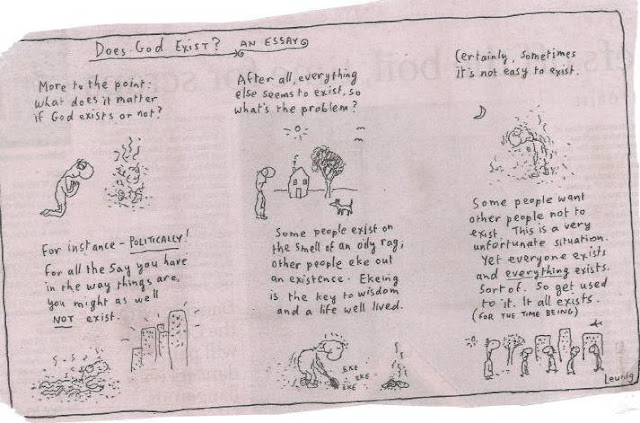 Does God Exist? AN ESSAY
More to the point:
What does it matter
if God exists or not?
For instance - POLITICALLY!
For all the say you have
in the way things are,
you might as well
NOT exist.
After all, everything
else seems to exist, so
what's the problem?
Some people exist on
the smell of an oily rag;
other people eke out
an existence. Ekeing
is the key to wisdom
and a life well lived.
EKE
EKE
EKE
Certainly, sometimes
it's not easy to exist.
Some people want
other people not to
exist. This is a very
unfortunate situation.
Yet everyone exists
and everything exists.
Sort of. So get used
to it. It all exists.
(FOR THE TIME BEING)
Leunig